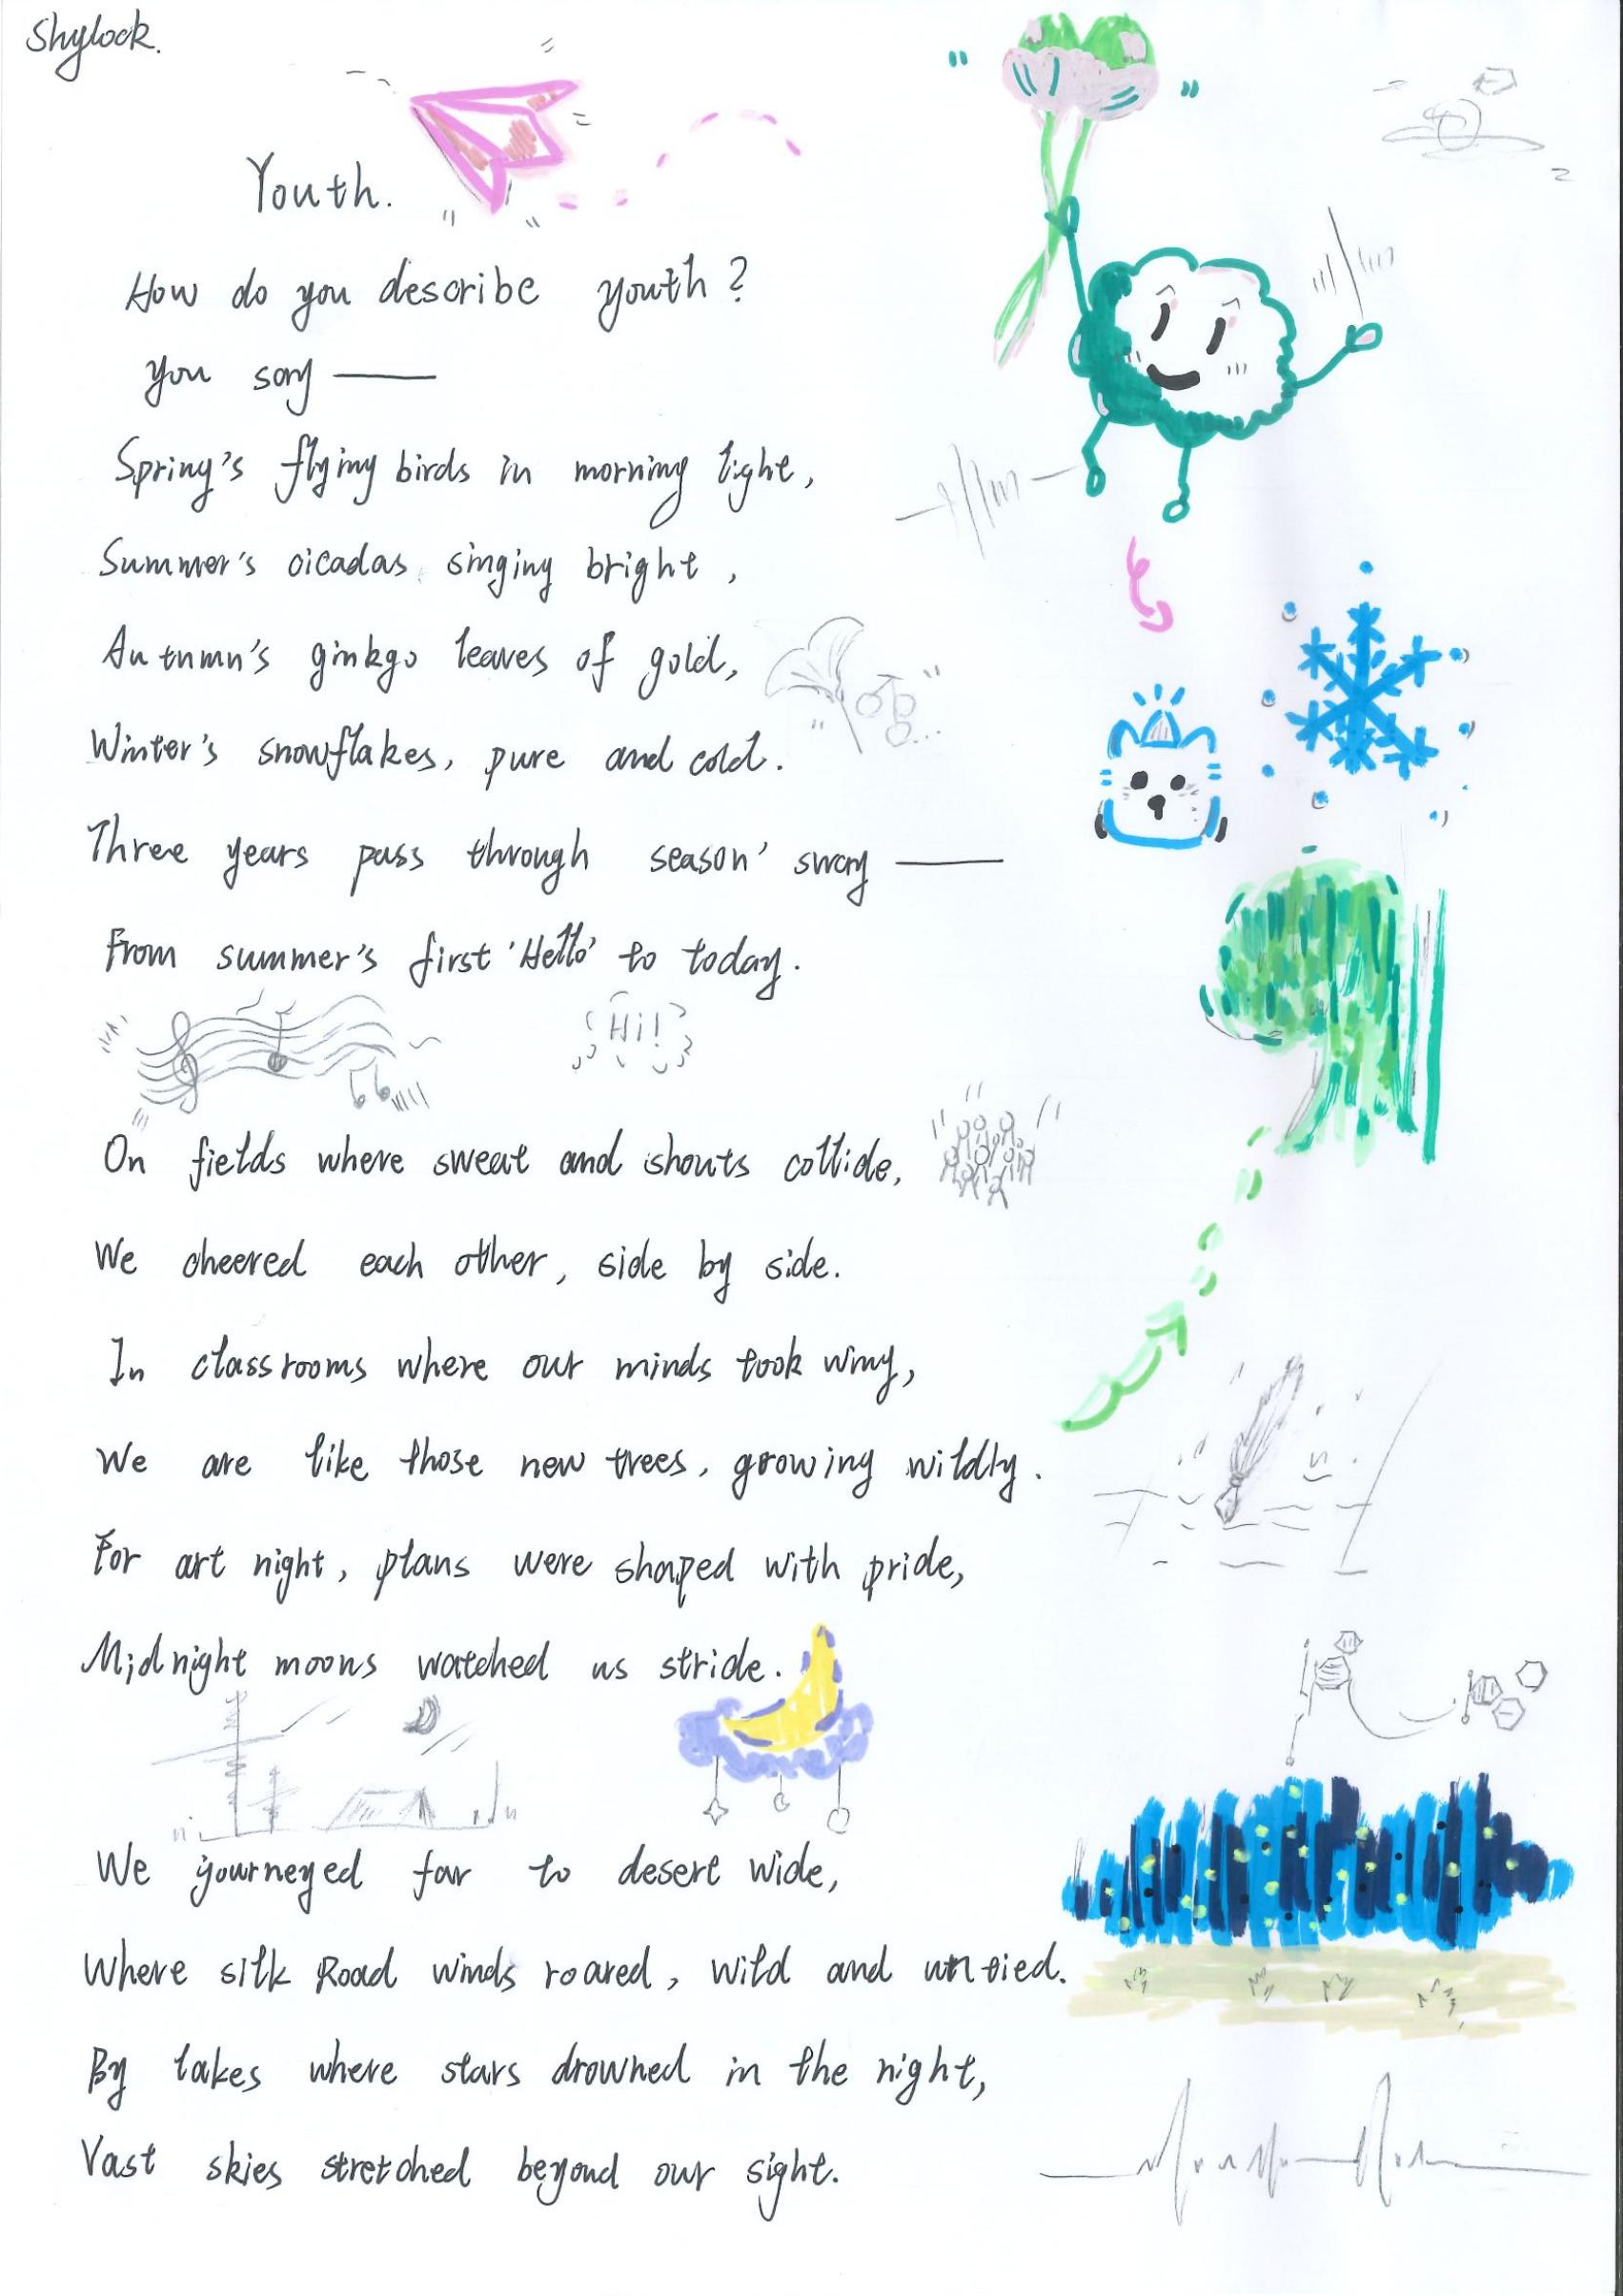 Shylock.
Youth.
How do you describe youth?
you say——
Spring's flying birds in morning light,
Summer's cicadas singing bright,
Autumn's ginkgo leaves of gold,
Winter's snowflakes, pure and cold.
Three years pass through season' sway——
From summer's first 'Hello' to today.
Hi!
On fields where sweat and shouts collide,
We cheered each other, side by side.
In classrooms where our minds took wing,
We are like those new trees, growing wildly.
For art night, plans were shaped with pride,
Midnight moons watched us stride.
We journeyed far to desert wide,
Where silk Road winds roared, wild and untied.
By lakes where stars drowned in the night,
Vast skies stretched beyond our sight.